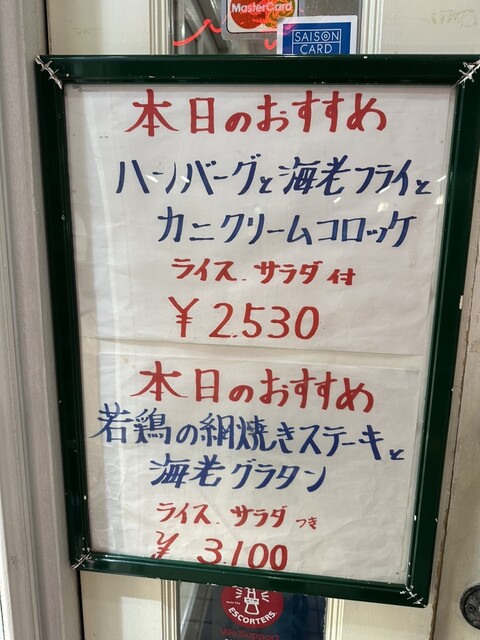 MasterCard
SAISON
CARD
本日のおすすめ
ハンバーグと海老フライと
カニクリームコロッケ
ライス.サラダ付
¥2.530
本日のおすすめ
若鶏の網焼きステーキと
海老グラタン
ライス.サラダつき
¥3.100
ESCORTERS.